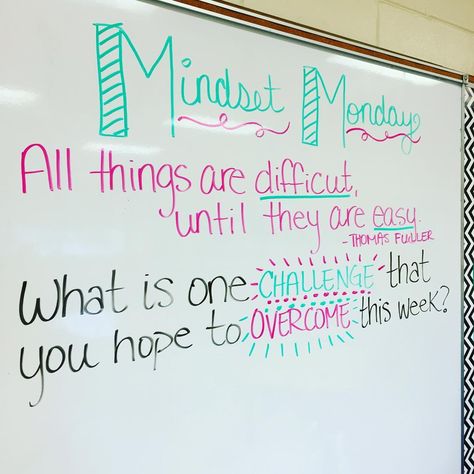 Mindset Monday
All things are difficut,
until they are easy.
- THOMAS FULLER
What is one CHALLENGE that
you hope to OVERCOME this week?